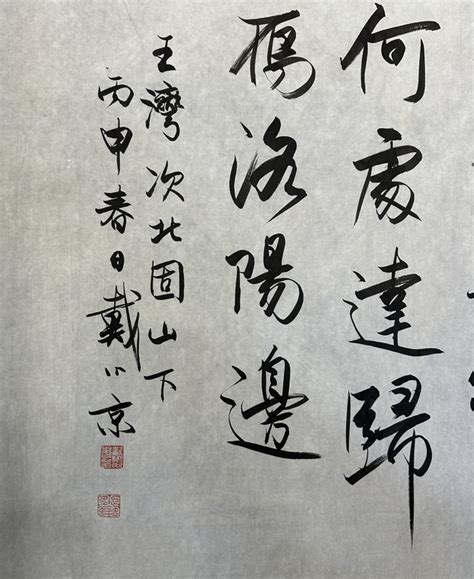 何處達歸
雁洛陽邊
王灣次北固山下
丙申春日戴小京